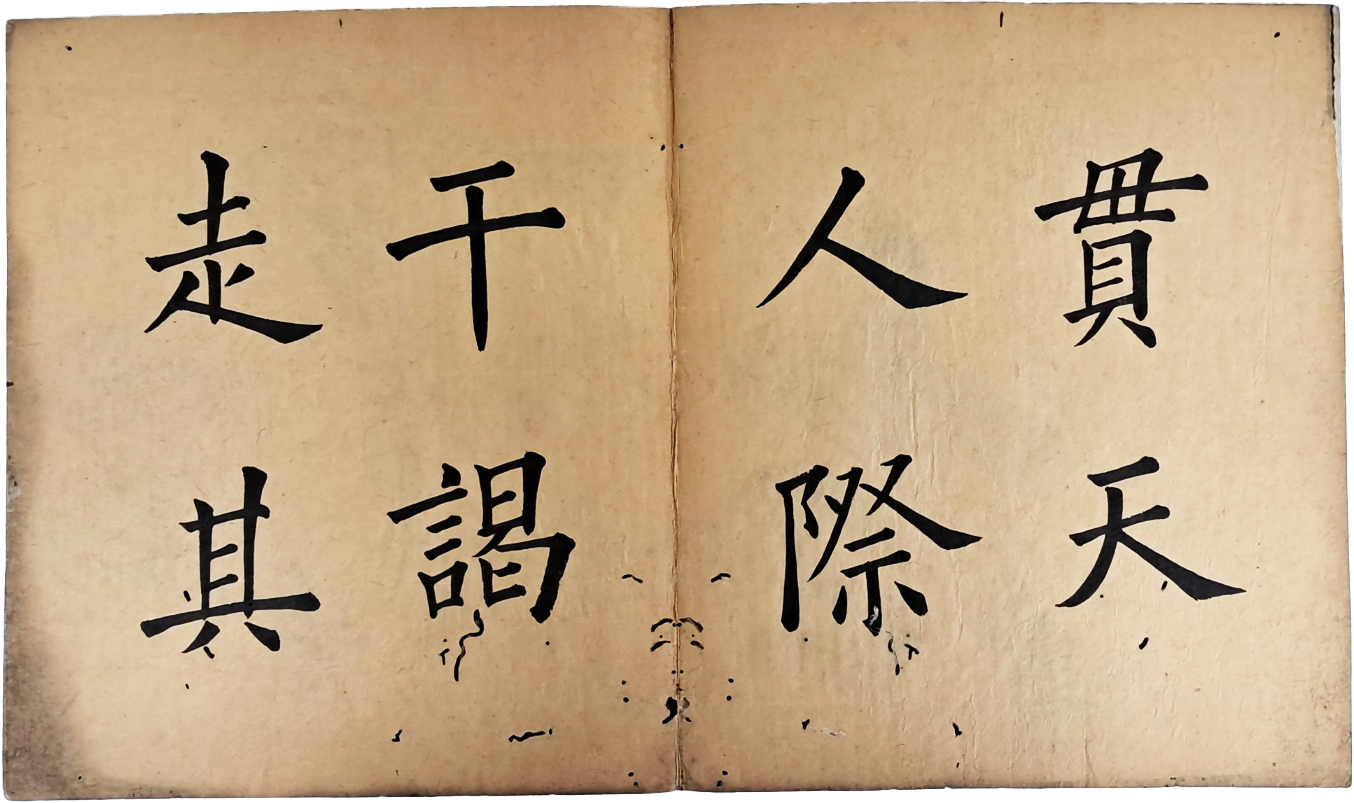 貫天
人際
干謁
走其